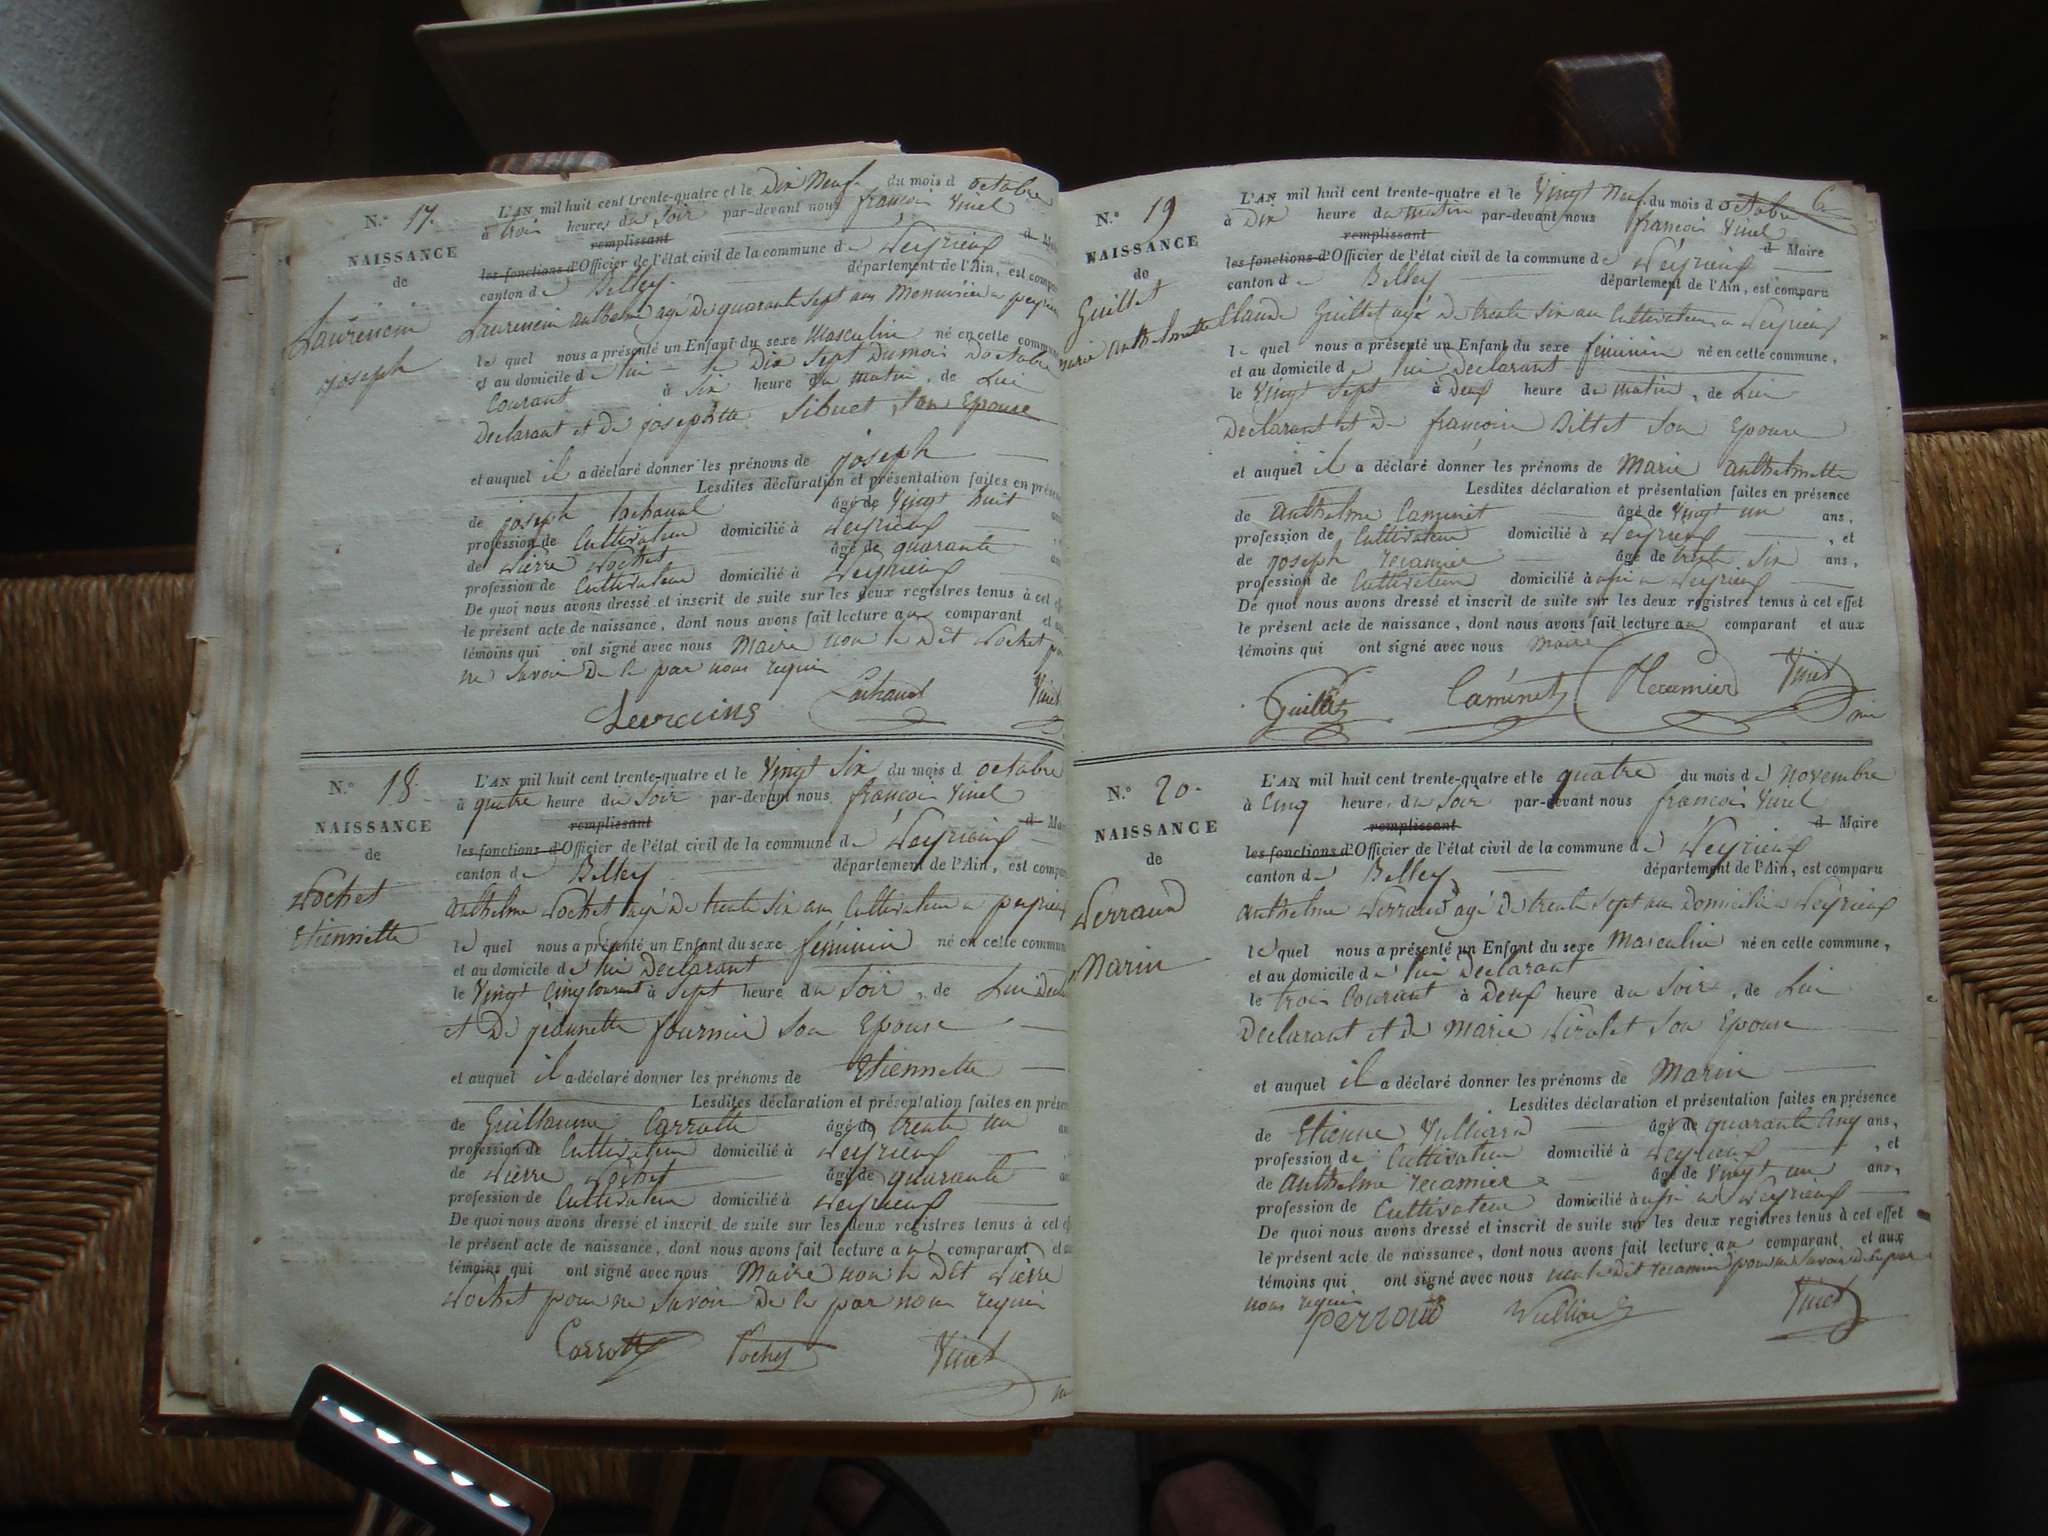 N.° 17.
NAISSANCE
de
Laurencin
joseph
L'AN mil huit cent trente-quatre et le Dix Neuf du mois d octobre
à trois heures du Soir par-devant nous françois Vinet
remplissant d
les fonctions d'Officier de l'état civil de la commune de Peyrieux
canton de Belley département de l'Ain, est compa
Laurencin anthelme agé de quarante Sept ans Menuisier a peyrieux
le quel nous a présenté un Enfant du sexe Masculin né en cette commune
et au domicile de lui le Dix Sept Du mois Doctobre
Courant à Six heure du matin, de Lui
Declarant et De josephtte Sibuet Son Epouse
et auquel il a déclaré donner les prénoms de joseph
Lesdites déclaration et présentation faites en prése
de joseph Lachaud âgé de Vingt huit
profession de Cultivateur domicilié à Peyrieux
de Pierre Pochet âgé de quarante
profession de Cultivateur domicilié à Peyrieux
De quoi nous avons dressé et inscrit de suite sur les deux registres tenus à cet
le présent acte de naissance, dont nous avons fait lecture au comparant et
témoins qui ont signé avec nous Maire non le Dit Pochet
ne Savoir De le par nous requis
Lachaud Vinet
N.° 18.
NAISSANCE
de
Pochet
Etiennette
L'AN mil huit cent trente-quatre et le Vingt Six du mois d octobre
à quatre heure du Soir par-devant nous françois Vinet
remplissant d
les fonctions d'Officier de l'état civil de la commune de Peyrieux
canton de Belley département de l'Ain, est compa
Anthelme Pochet agé De trente Six ans Cultivateur a peyrieux
le quel nous a présenté un Enfant du sexe féminin né en cette commun
et au domicile de lui Declarant
le Vingt Cinq Courant à Sept heure du Soir, de Lui
et De jeannette fournier Son Epouse
et auquel il a déclaré donner les prénoms de Etiennette
Lesdites déclaration et présentation faites en prése
de Guillaume Carrotte âgé de trente un
profession de Cultivateur domicilié à Peyrieux
de Pierre Pochet âgé de quarante
profession de Cultivateur domicilié à Peyrieux
De quoi nous avons dressé et inscrit de suite sur les deux registres tenus à cet
le présent acte de naissance, dont nous avons fait lecture au comparant et
témoins qui ont signé avec nous Maire non le Dit Pierre
Pochet pour ne Savoir De le par nous requis
Carrotte Pochet Vinet
N.° 19
NAISSANCE
de
Guillet
marie anthelmette
L'AN mil huit cent trente-quatre et le Vingt Neuf du mois d octobre
à Dix heure du matin par-devant nous françois Vinet
remplissant d Maire
les fonctions d'Officier de l'état civil de la commune de Peyrieux
canton de Belley département de l'Ain, est comparu
Claude Guillet agé De trente Six ans Cultivateur a Peyrieux
le quel nous a présenté un Enfant du sexe féminin né en cette commune,
et au domicile de lui Declarant
le Vingt Sept à Deux heure du matin, de Lui
Declarant et De françoise Billet Son Epouse
et auquel il a déclaré donner les prénoms de Marie anthelmette
Lesdites déclaration et présentation faites en présence
de anthelme Caminet âgé de Vingt un ans,
profession de Cultivateur domicilié à Peyrieux, et
de joseph recamier âgé de trente Six ans,
profession de Cultivateur domicilié à aussi a Peyrieux
De quoi nous avons dressé et inscrit de suite sur les deux registres tenus à cet effet
le présent acte de naissance, dont nous avons fait lecture au comparant et aux
témoins qui ont signé avec nous Maire
Guillet Caminet Recamier Vinet
N.° 20.
NAISSANCE
de
Perraud
Marin
L'AN mil huit cent trente-quatre et le quatre du mois de Novembre
à Cinq heure du Soir par-devant nous françois Vinet
remplissant d Maire
les fonctions d'Officier de l'état civil de la commune de Peyrieux
canton de Belley département de l'Ain, est comparu
anthelme Perraud agé De trente Sept ans Domicilié a Peyrieux
le quel nous a présenté un Enfant du sexe Masculin né en cette commune,
et au domicile de lui Declarant
le trois Courant à Deux heure du Soir, de Lui
Declarant et De Marie Pirolet Son Epouse
et auquel il a déclaré donner les prénoms de Marin
Lesdites déclaration et présentation faites en présence
de Etienne Vulliard âgé de quarante Cinq ans,
profession de Cultivateur domicilié à Peyrieux, et
de anthelme recamier âgé de Vingt un ans,
profession de Cultivateur domicilié à aussi a Peyrieux
De quoi nous avons dressé et inscrit de suite sur les deux registres tenus à cet effet
le présent acte de naissance, dont nous avons fait lecture au comparant et aux
témoins qui ont signé avec nous non le Dit recamier pour ne Savoir De le par
nous requis
perroud Vulliard Vinet